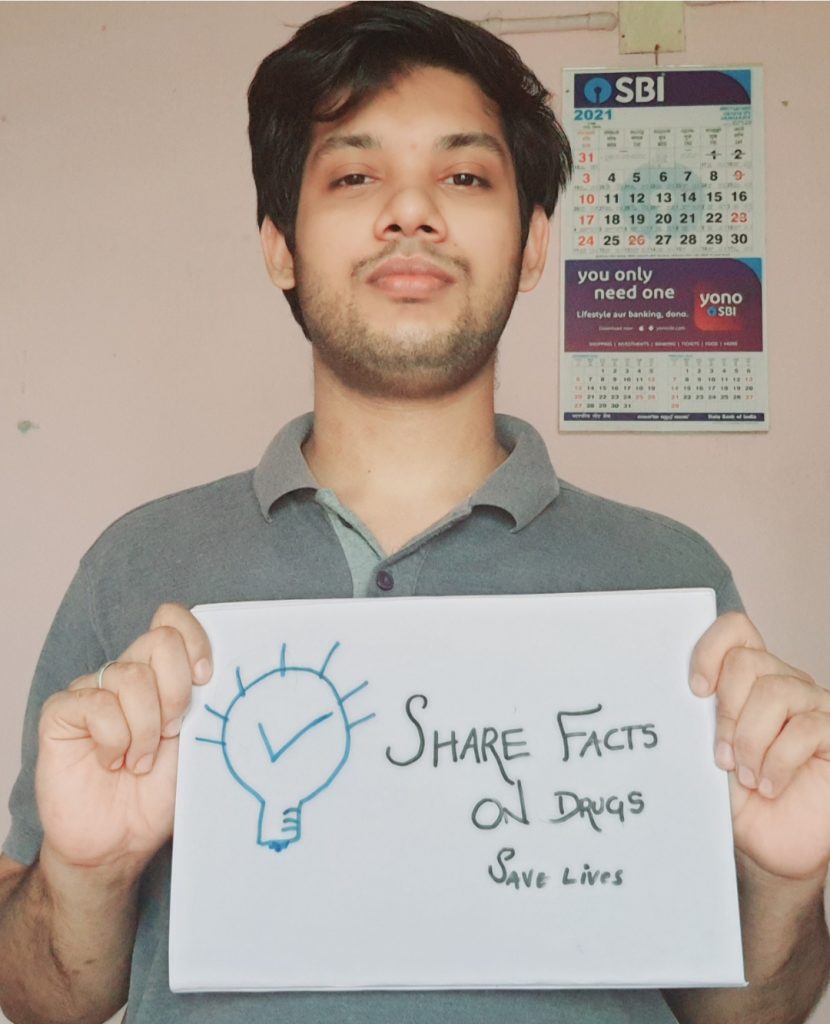 SBI
2021
31 1 2
3 4 5 6 7 8 9
10 11 12 13 14 15 16
17 18 19 20 21 22 23
24 25 26 27 28 29 30
you only
need one
yono
SBI
Lifestyle aur banking, dono.
SHOPPING | INVESTMENTS | BANKING | TICKETS | FOOD | MORE
State Bank of India
SHARE FACTS
ON DRUGS
SAVE LIVES